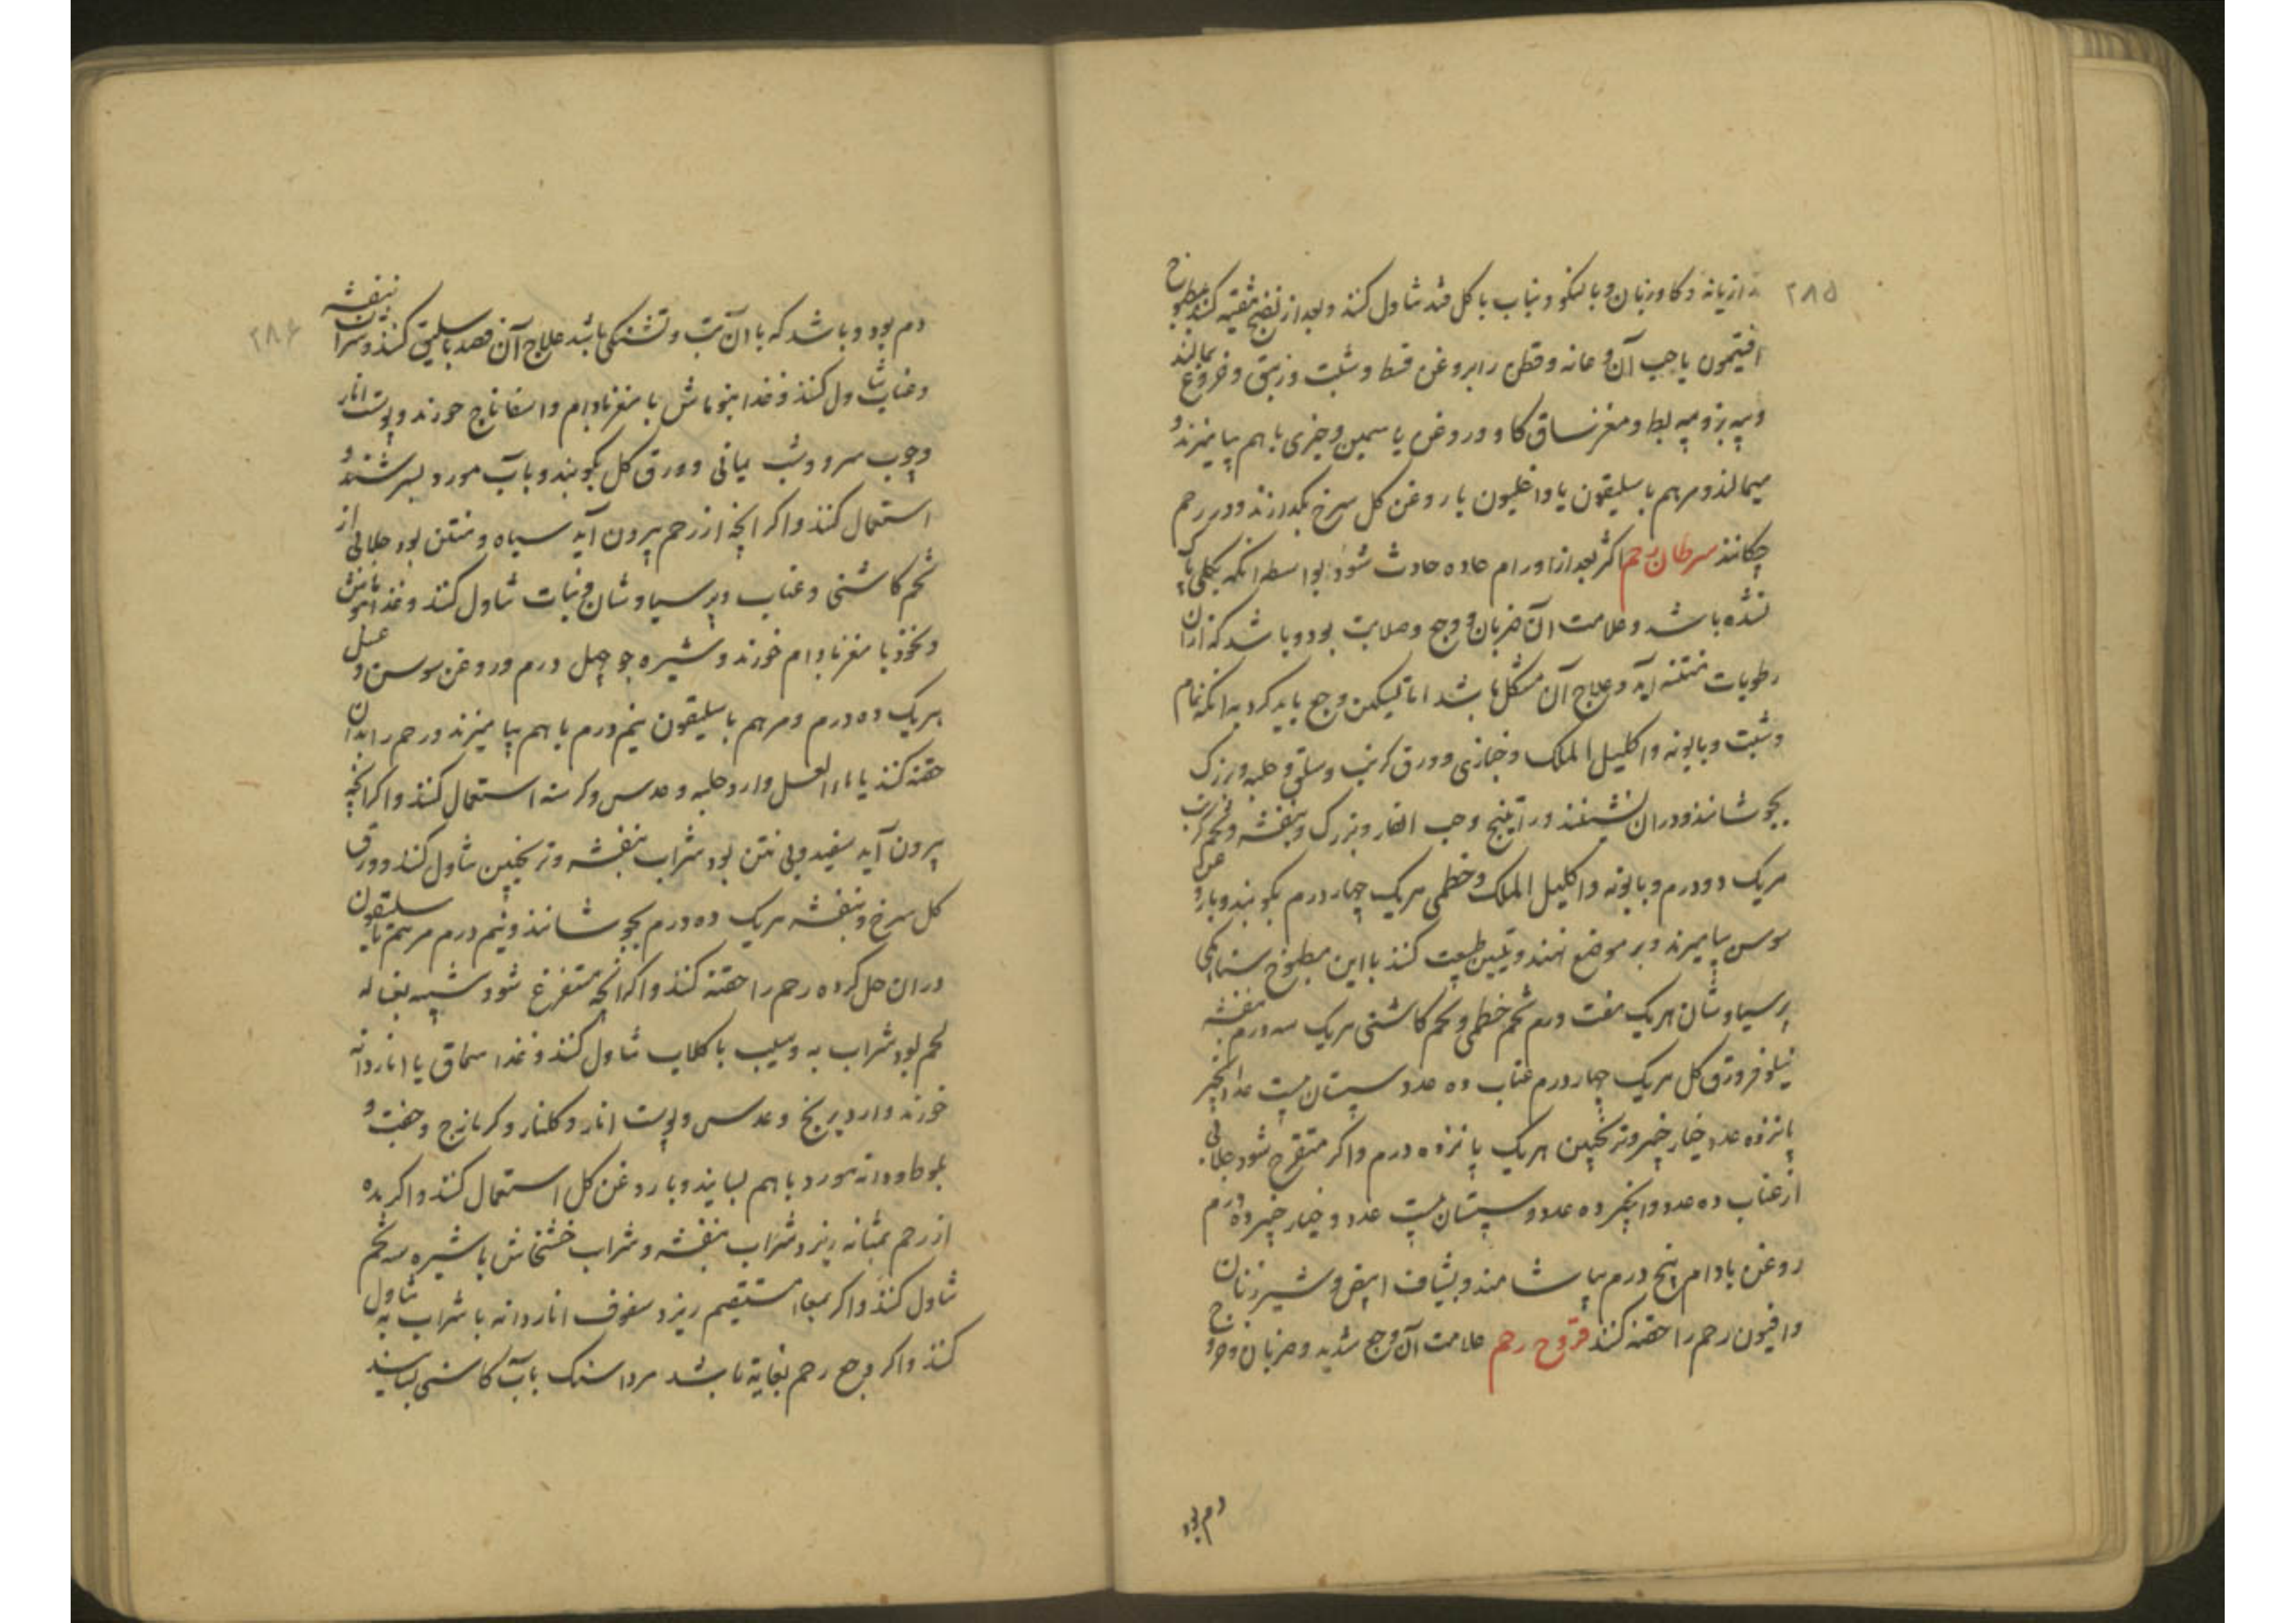 ۲۸۵
رازیانه و کاوزبان و بالنکو و نبات با کل قند تناول کنند و بعد از نضج تنقیه کنند بمطبوخ
افتیمون یا حب آن و عانه و قطن را بروغن قسط و شبت و زنبق و خروع بمالند
و پیه بز و پیه بط و مغز ساق کاو و روغن یاسمین و خیری با هم بیامیزند و
میمالند و مرهم باسلیقون یا داخلیون با روغن کل سرخ بکدازند و در رحم
چکانند سرطان رحم اکثر بعد از اورام حاده حادث شود بواسطه انکه بکلی پاک
نشده باشد و علامت آن ضربان و وجع و صلابت بود و باشد که ازان
رطوبات منتنه آید و علاج آن مشکل باشد اما تسکین وجع باید کرد بدانکه نمام
و شبت و بابونه و اکلیل الملک و خبازی و ورق کرنب و سلق و حلبه و بزرک
بجوشانند و دران نشینند و راتینج و حب الغار و بزرک و بنفشه و تخم کرنب
هریک دو درم و بابونه و اکلیل الملک و خطمی هریک چهار درم بکوبند و با روغن
سوسن بیامیزند و بر موضع نهند و تلیین طبیعت کنند با این مطبوخ سنا مکی
پرسیاوشان هریک هفت درم تخم خطمی و تخم کاشنی هریک سه درم بنفشه
نیلوفر ورق کل هریک چهار درم عناب ده عدد سپستان بیست عدد انجیر
پانزده عدد خیار چنبر و ترنجبین هریک پانزده درم و اکر متقرح شود جلابی
از عناب ده عدد و انجیر ده عدد و سپستان بیست عدد و خیار چنبر ده درم
روغن بادام پنج درم بیاشامند و بشیاف ابیض و شیر زنان
و افیون رحم را حقنه کنند قروح رحم علامت آن وجع شدید و ضربان و خروج
دم بود
۲۸۶
دم بود و باشد که با آن تب و تشنکی باشد علاج آن فصد باسلیق کنند و شراب بنفشه
و عناب تناول کنند و غذا بنوماش با مغز بادام و اسفاناج خورند و پوست انار
و چوب سرو و شب یمانی و ورق کل بکوبند و بآب مورد بسرشند و
استعمال کنند و اکر انچه از رحم بیرون آید سیاه و منتن بود جلابی از
تخم کاشنی و عناب و پرسیاوشان و نبات تناول کنند و غذا بنوماش
و نخود با مغز بادام خورند و شیره جو چهل درم و روغن سوسن و عسل
هریک ده درم و مرهم باسلیقون نیم درم با هم بیامیزند و رحم را بدان
حقنه کنند یا ماءالعسل و آرد حلبه و عدس و کرسنه استعمال کنند و اکر انچه
بیرون آید سفید و بی نتن بود شراب بنفشه و ترنجبین تناول کنند و ورق
کل سرخ و بنفشه هریک ده درم بجوشانند و نیم درم مرهم باسلیقون
دران حل کرده رحم را حقنه کنند و اکر انچه مستفرغ شود شبیه بغساله
لحم بود شراب به و سیب با کلاب تناول کنند و غذا سماق یا اناردانه
خورند و آرد برنج و عدس و پوست انار و کلنار و کزمازج و جفت
بلوط و دانه مورد با هم بسایند و با روغن کل استعمال کنند و اکر مده
از رحم بمثانه ریزد شراب بنفشه و شراب خشخاش با شیره سه تخم
تناول کنند و اکر بمعاء مستقیم ریزد سفوف اناردانه با شراب به تناول
کنند و اکر وجع رحم بغایة باشد مرداسنک بآب کاسنی بسایند